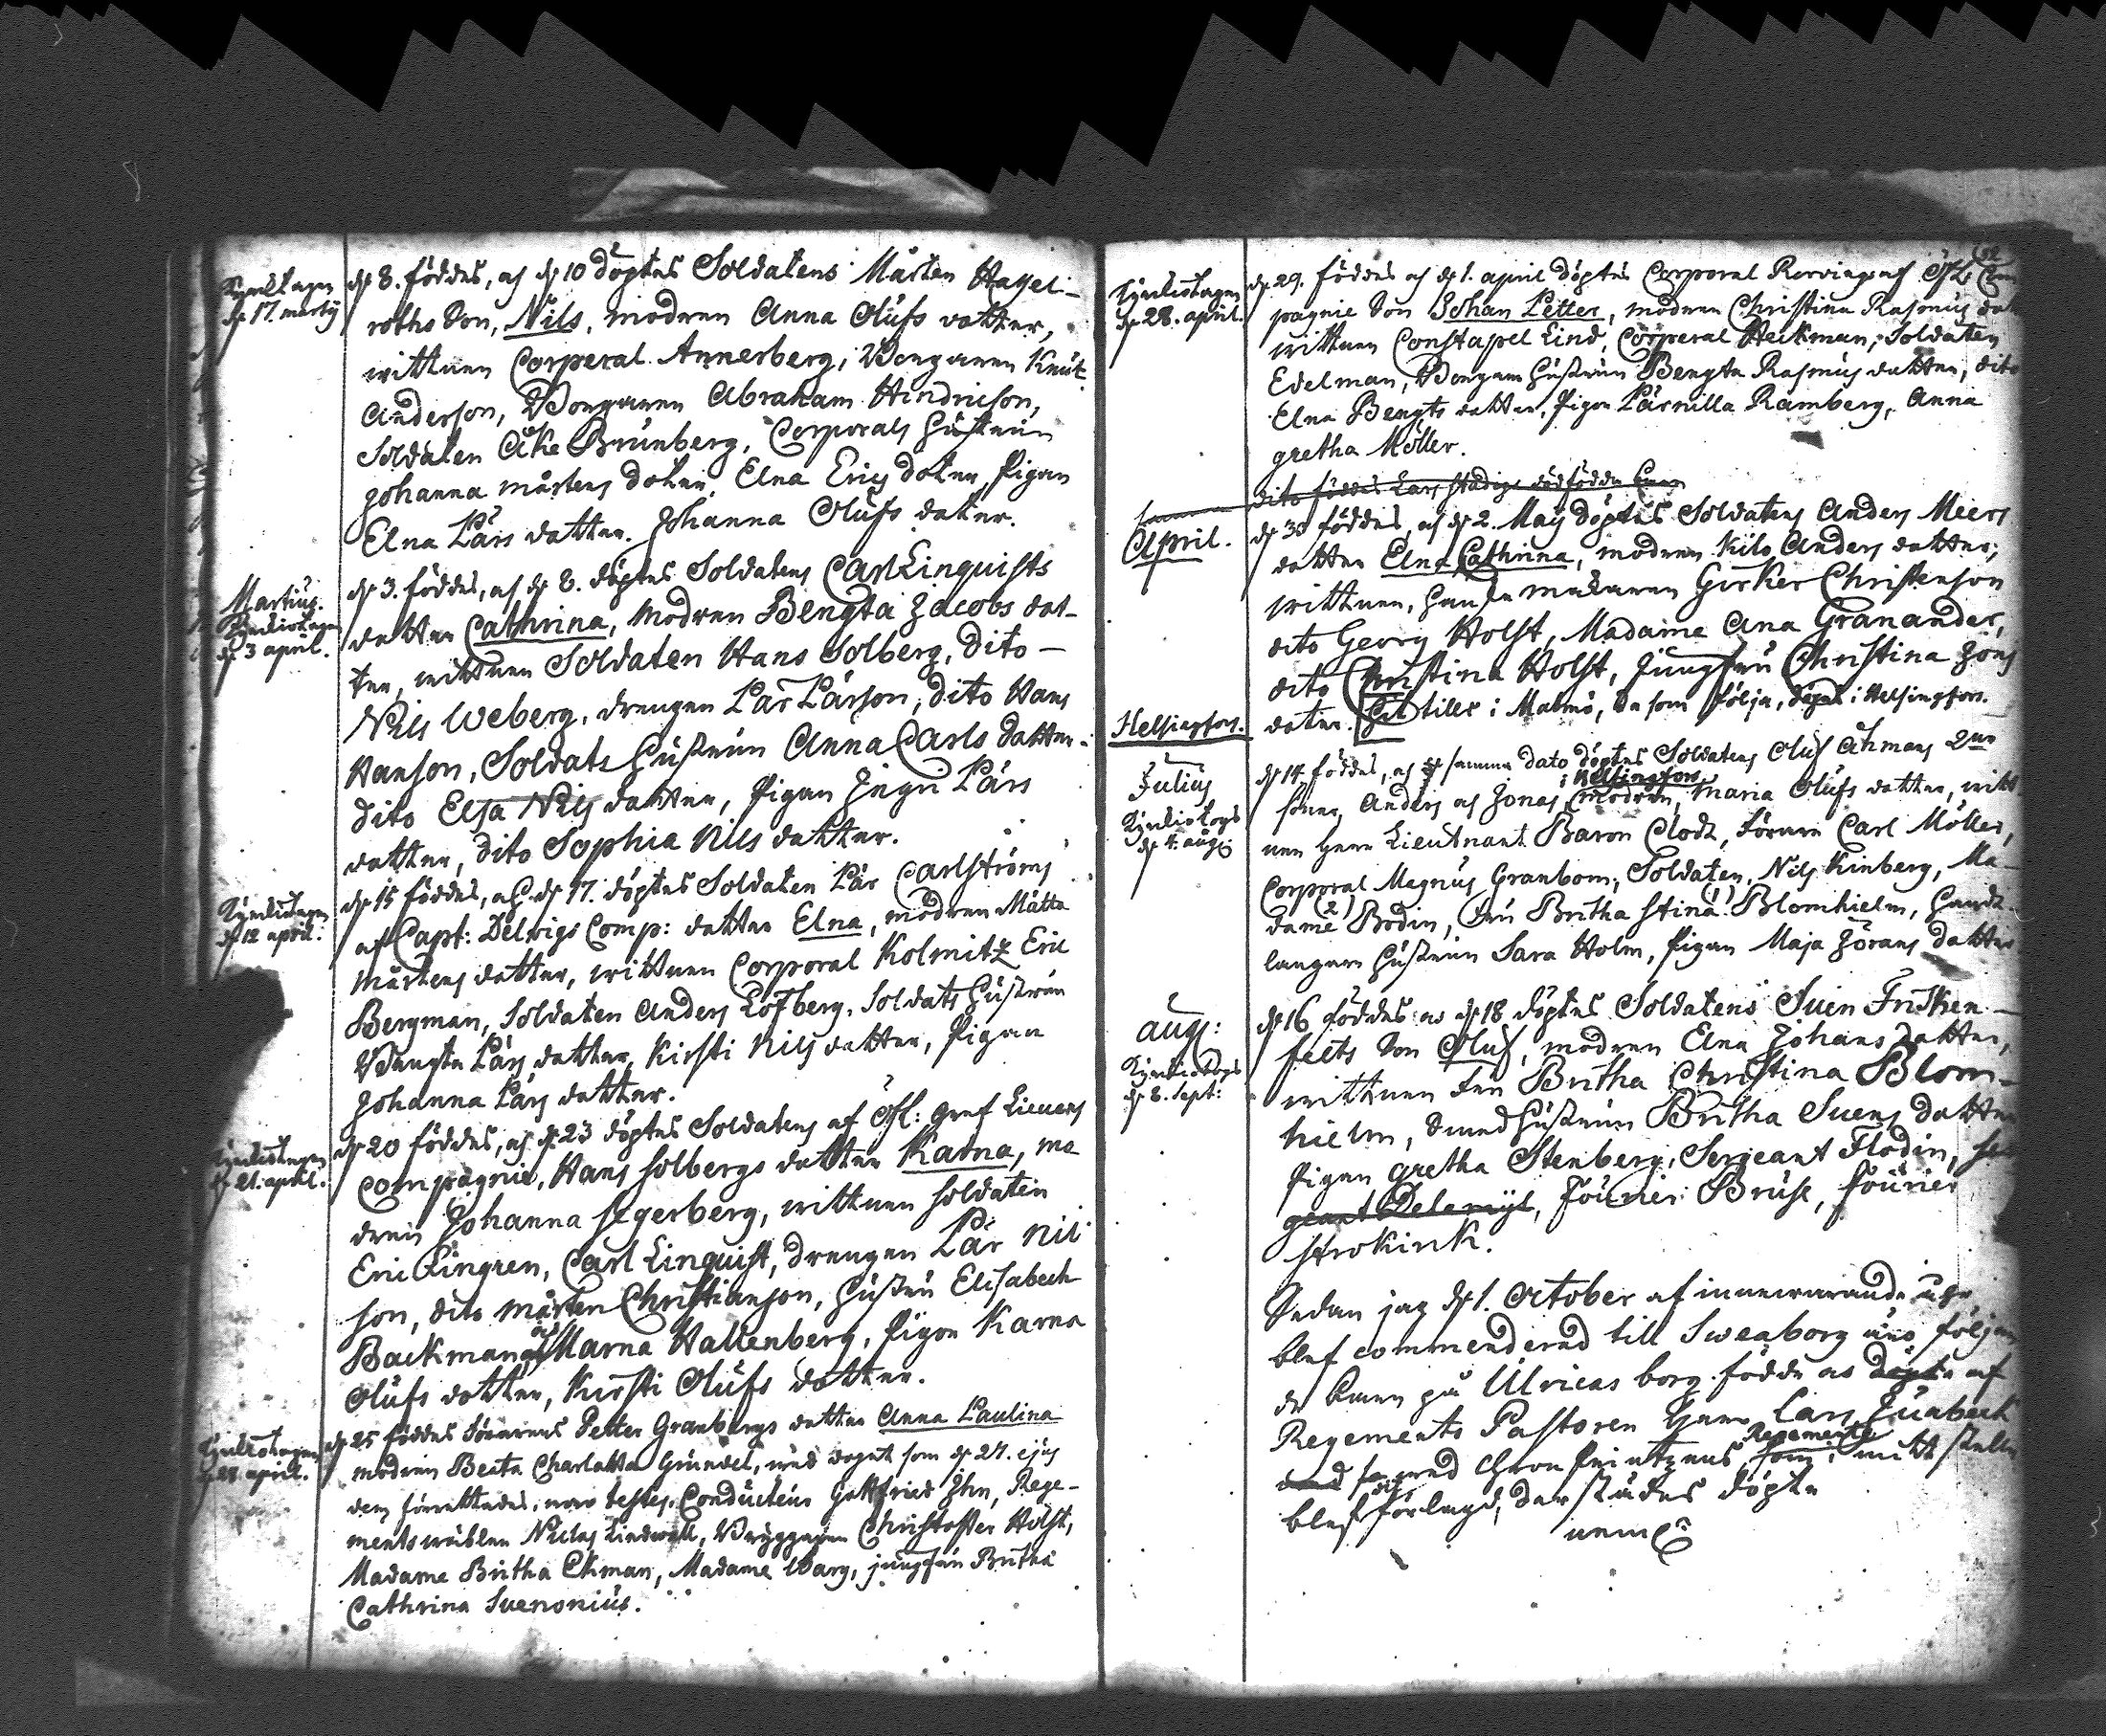 Kyrckotagen
d. 17. martij
d. 8. föddes, och d. 10 döptes Soldatens Mårten Hagel-
roths Son, Nils, modren Anna Olufs dotter,
wittnen Corperal Annerberg, Bengaren Knut
Anderson, Bongaren Abraham Hindricson,
Soldaten Åke Brunberg, Corporals Hustrun
Johanna Mårtens doter, Elna Erics doter, Pigan
Elna Pärs dotter. Johanna Olufs doter.
Martius.
Kyrckiotagen
d. 3 april.
d. 3. föddes, och d. 8. döptes Soldatens Carl Linquists
dotter Cathrina, modren Bengta Jacobs dot-
ter, wittnen Soldaten Hans Solberg, Dito
Nils Weberg, drengen Pär Pärson, dito Hans
Hanson, Soldats Hustrun Anna Carls dotter.
dito Elsa Nils dotter, Pigan Ingri Pärs
dotter, dito Sophia Nils dotter.
Kyrckiotagen
d. 12 april.
d. 15 föddes, och d. 17. döptes Soldaten Pär Carlströms
af Capt: Delwigs Comp: dotter Elna, modren Mätta
Mårtens dotter, wittnen Corporal Kolmitz Eric
Bergman, Soldaten Anders Löfberg, Soldats Hustrun
Bengta Pärs dotter, Kirsti Nils dotter, Pigan
Johanna Pärs dotter.
Kyrckiotagen
d. 21. april.
d. 20 föddes, och d. 23 döptes Soldatens af Öfl: Gref Lieuens
Compagnie, Hans Solbergs dotter Karna, mo
dren Johanna Segerberg, wittnen soldaten
Eric Lingren, Carl Linquist, drengen Pär Nil
son, dito Mårten Christianson, Hustru Elisabeth
Backman, och Marna Hallenberg, Pigon Karna
Olufs dotter, Kirsti Olufs dotter.
Kyrckiotagen
d. 28. april.
d. 25 föddes Förarens Petter Granbergs dotter Anna Paulina
modren Beata Charlotta Grundel, wid dopet som d. 27. ejus
dem förrettades, woro testes, Conducteur Gottfried Ihn, Rege-
ments wäblen Niclas Lindwall, Bryggaren Christoffer Holst,
Madame Britha Ekman, Madame Warg, jungfru Britha
Cathrina Suenonius.
Kyrckiotagen
d. 28. april.
d. 29. föddes och d. 1. april döptes Corporal Rorvings af Öfl: Com
pagnie Son Johan Petter, modren Christina Rasmus dot
wittnen Constapel Lind, Corperal Heckman, Soldaten
Edelman, Bongare Hustrun Bengta Rasmus dotter, dito
Elna Bengts dotter, Pigon Pärnilla Ramberg, Anna
gretha Möller.
dito föddes Lars Stadigs dödfödda barn
April.
d. 30 föddes, och d. 2. Maij döptes Soldatens Anders Meers
dotter Elna Cathrina, modren Kilo Anders dotter,
wittnen, Handskmakaren Girker Christenson
dito Georg Holst, Madame Ana Granander,
dito Christina Holst, Jungfru Christina Jöns
doter. Hit tills i Malmö, de som följa, döpte i Helsingfors.
Helsingfors.
Julius
Kyrckiotogs
d. 4. aug:
d. 14 föddes, och samma dato döptes Soldatens Oluf Åhmans 2ne
i Helsingfors
söner, Anders och Jonas, modren, Maria Olufs dotter, witt
nen Herr Lieutnant Baron Clodt, Förare Carl Möller,
Corporal Magnus Granbom, Soldaten, Nils Kinberg, Ma-
dame Bodin, Fru Britha Stina Blomhielm, Handt
langare Hustrun Sara Holm, Pigan Maja Jörans dotter
Aug:
Kyrckiotogs
d. 8. Sept:
d. 16 föddes och d. 18 döptes Soldatens Suen Frisken-
felts Son Oluf, modren Elna Johans dotter,
wittnen Fru Britha Christina Blom-
hielm, Smed Hustrun Britha Suens dotter
Pigan Gretha Stenberg, Sergeant Flodin, Ser
geant, Fourier Bruse, Fourier
Strokirk.
Sedan jag d. 1. October af innewarande åhr
blef commenderad till Sweaborg äro följan
de barn på Ulricas borg födde och döpte af
Regements Pastoren Herr Lars
Regemente
som i mitt ställe
blef förlagd, derstädes döpte